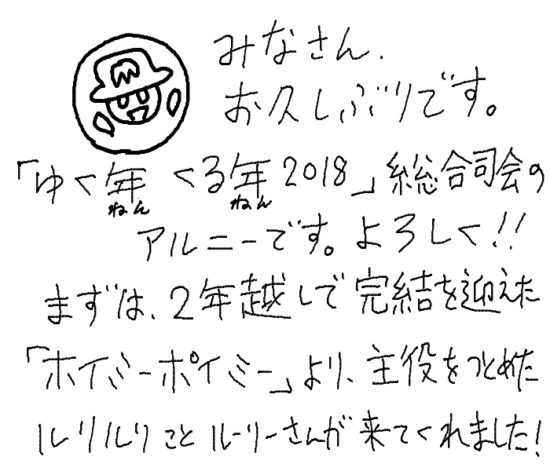 みなさん、
お久しぶりです。
「ゆく年 くる年2018」総合司会の
ねん ねん
アルニーです。よろしく!!
まずは、2年越しで完結を迎えた
「ホイミーポイミー」より、主役をつとめた
ルリルリこと ルーリーさんが来てくれました!